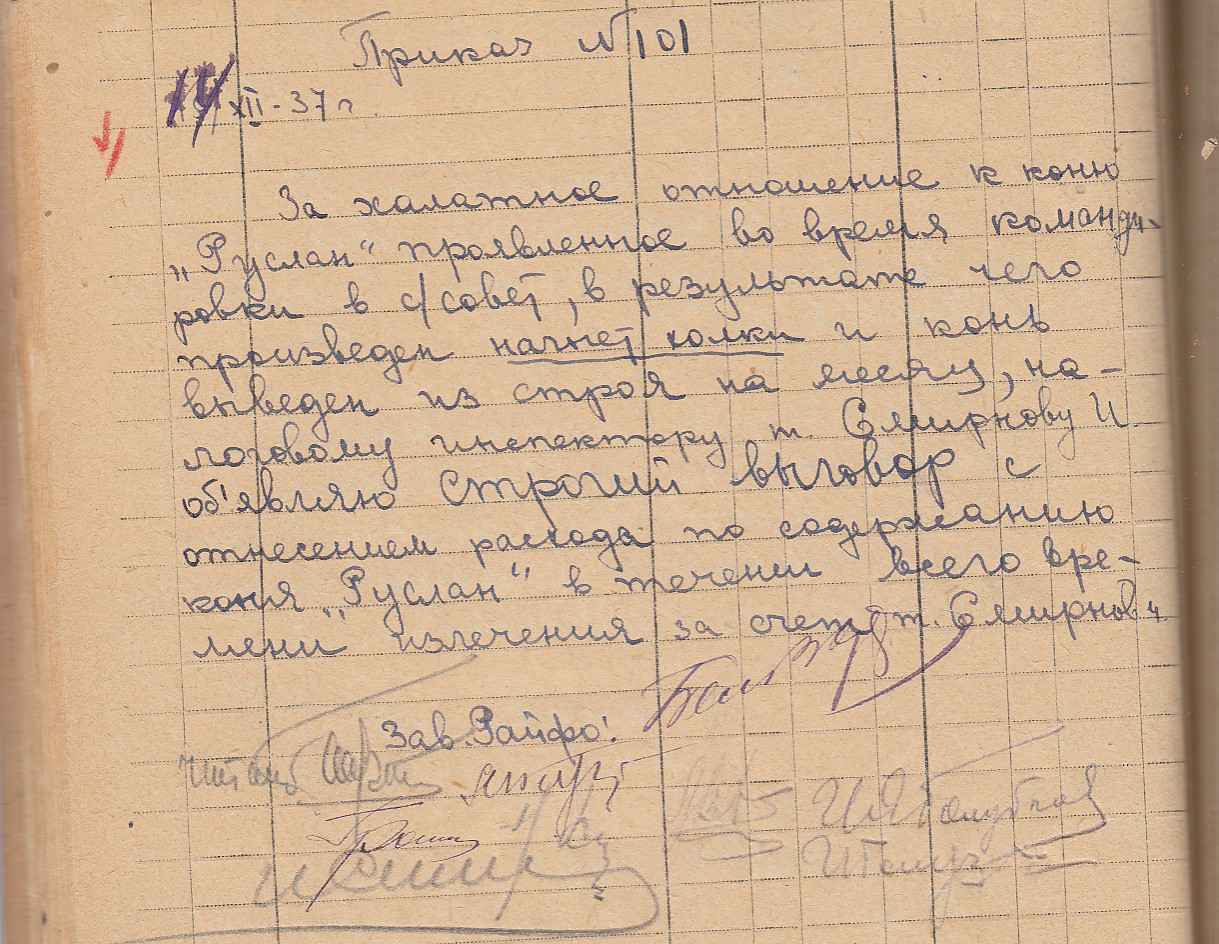 Приказ №101
14 XII-37 г.
За халатное отношение к коню
„Руслан“ проявленное во время команди-
ровки в с/совет, в результате чего
произведен нагнет холки и конь
выведен из строя на месяц, на-
логовому инспектору т. Смирнову И.
об'являю строгий выговор с
отнесением расхода по содержанию
коня „Руслан“ в течении всего вре-
мени излечения за счет т. Смирнов И.
Зав. Райфо:
Читал